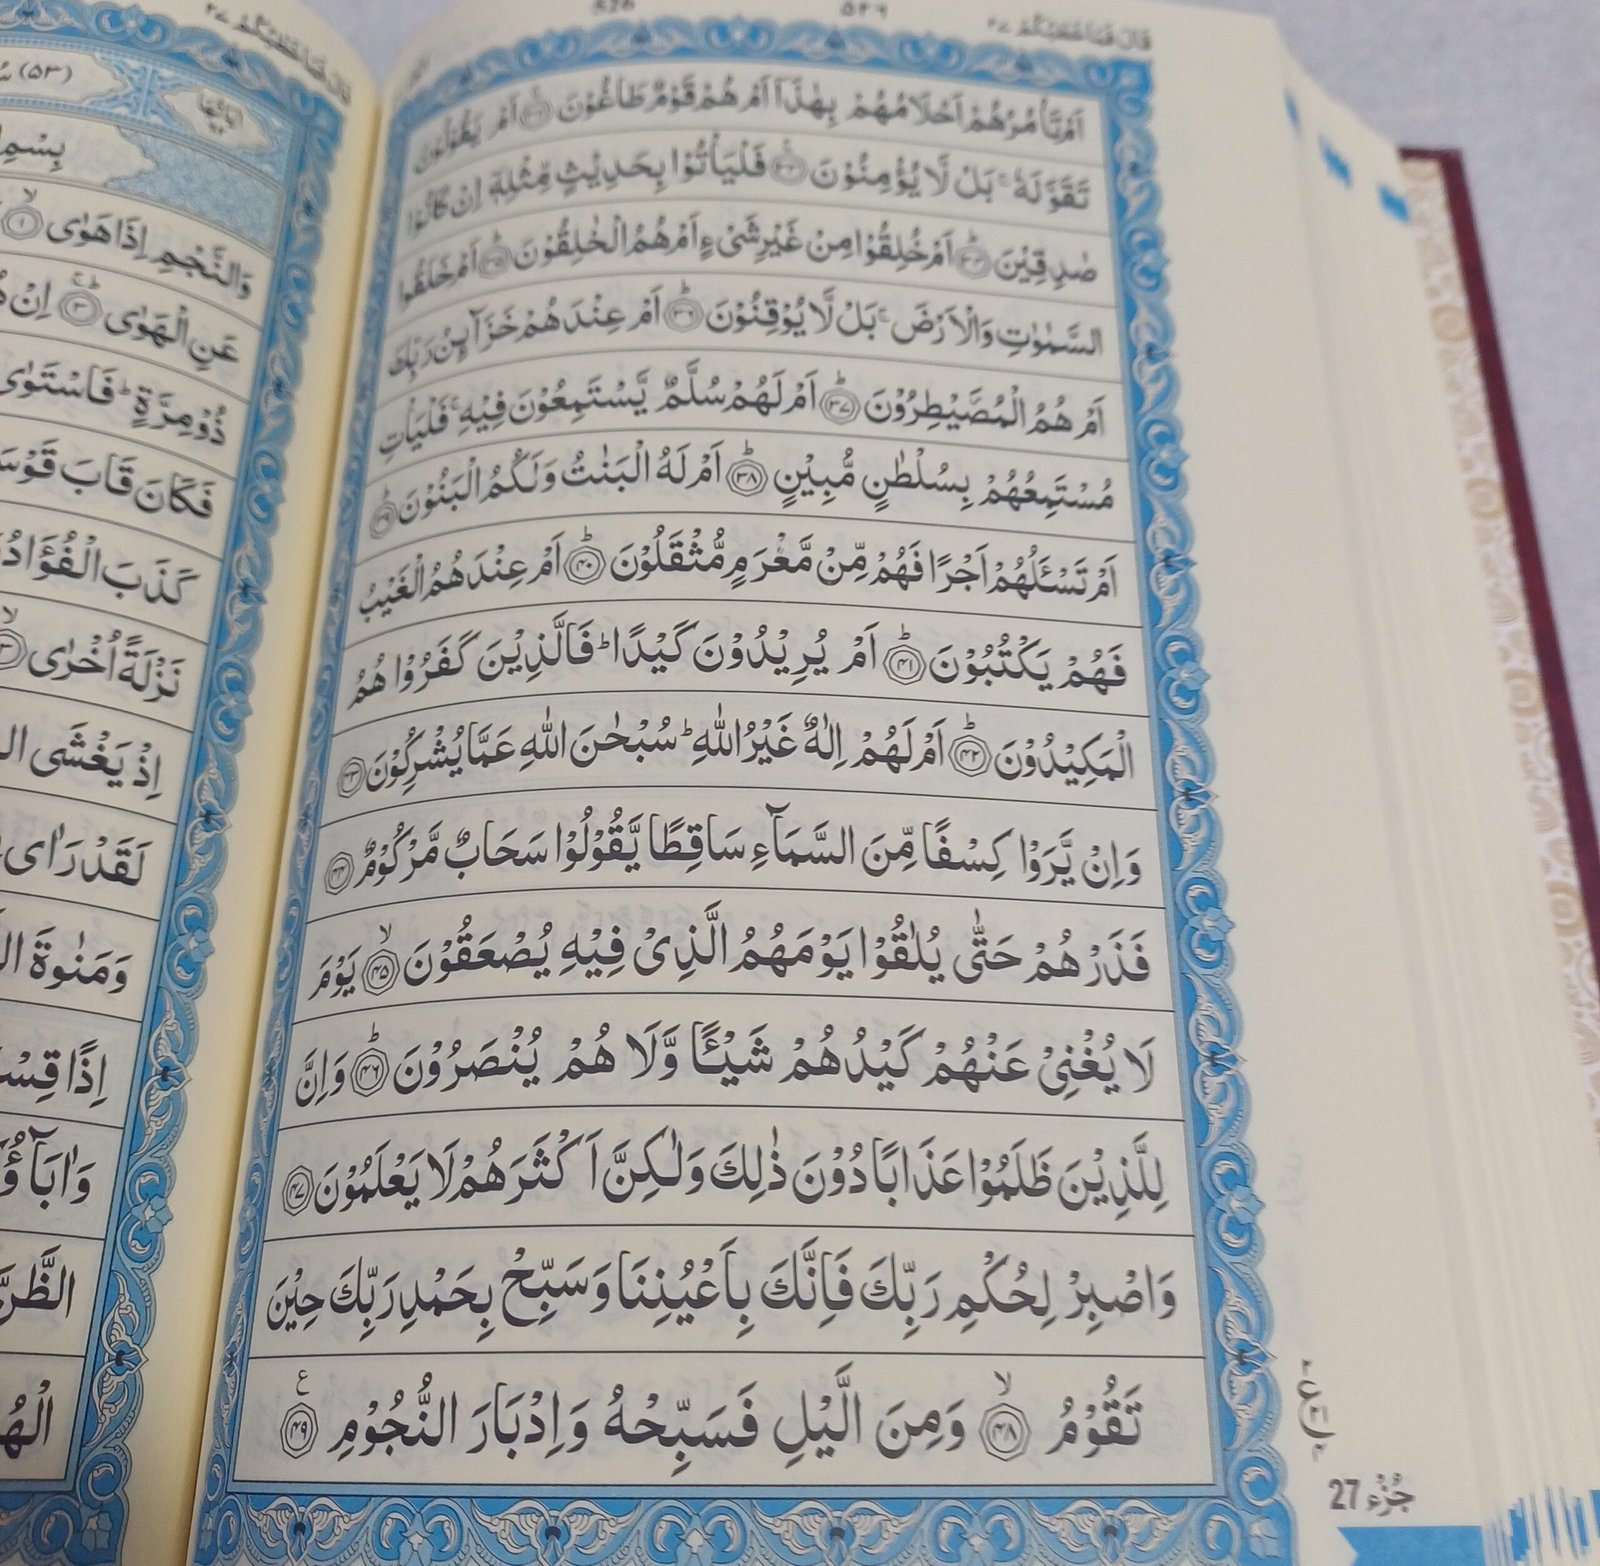 قَالَ فَمَا خَطْبُكُمْ ٢٧
٥٢٦
526
اَمْ تَاْمُرُهُمْ اَحْلَامُهُمْ بِهٰذَآ اَمْ هُمْ قَوْمٌ طَاغُوْنَ ﴿٣٢﴾ اَمْ يَقُوْلُوْنَ
تَقَوَّلَهٗ ۚ بَلْ لَّا يُؤْمِنُوْنَ ﴿٣٣﴾ فَلْيَاْتُوْا بِحَدِيْثٍ مِّثْلِهٖٓ اِنْ كَانُوْا
صٰدِقِيْنَ ﴿٣٤﴾ اَمْ خُلِقُوْا مِنْ غَيْرِ شَىْءٍ اَمْ هُمُ الْخٰلِقُوْنَ ﴿٣٥﴾ اَمْ خَلَقُوا
السَّمٰوٰتِ وَالْاَرْضَ ۚ بَلْ لَّا يُوْقِنُوْنَ ﴿٣٦﴾ اَمْ عِنْدَهُمْ خَزَآئِنُ رَبِّكَ
اَمْ هُمُ الْمُصَۜيْطِرُوْنَ ﴿٣٧﴾ اَمْ لَهُمْ سُلَّمٌ يَّسْتَمِعُوْنَ فِيْهِ ۚ فَلْيَاْتِ
مُسْتَمِعُهُمْ بِسُلْطٰنٍ مُّبِيْنٍ ﴿٣٨﴾ اَمْ لَهُ الْبَنٰتُ وَلَكُمُ الْبَنُوْنَ ﴿٣٩﴾
اَمْ تَسْـَٔلُهُمْ اَجْرًا فَهُمْ مِّنْ مَّغْرَمٍ مُّثْقَلُوْنَ ﴿٤٠﴾ اَمْ عِنْدَهُمُ الْغَيْبُ
فَهُمْ يَكْتُبُوْنَ ﴿٤١﴾ اَمْ يُرِيْدُوْنَ كَيْدًا ؕ فَالَّذِيْنَ كَفَرُوْا هُمُ
الْمَكِيْدُوْنَ ﴿٤٢﴾ اَمْ لَهُمْ اِلٰهٌ غَيْرُ اللّٰهِ ؕ سُبْحٰنَ اللّٰهِ عَمَّا يُشْرِكُوْنَ ﴿٤٣﴾
وَاِنْ يَّرَوْا كِسْفًا مِّنَ السَّمَآءِ سَاقِطًا يَّقُوْلُوْا سَحَابٌ مَّرْكُوْمٌ ﴿٤٤﴾
فَذَرْهُمْ حَتّٰى يُلٰقُوْا يَوْمَهُمُ الَّذِىْ فِيْهِ يُصْعَقُوْنَ ۙ﴿٤٥﴾ يَوْمَ
لَا يُغْنِىْ عَنْهُمْ كَيْدُهُمْ شَيْـًٔا وَّلَا هُمْ يُنْصَرُوْنَ ؕ﴿٤٦﴾ وَاِنَّ
لِلَّذِيْنَ ظَلَمُوْا عَذَابًا دُوْنَ ذٰلِكَ وَلٰكِنَّ اَكْثَرَهُمْ لَا يَعْلَمُوْنَ ﴿٤٧﴾
وَاصْبِرْ لِحُكْمِ رَبِّكَ فَاِنَّكَ بِاَعْيُنِنَا وَسَبِّحْ بِحَمْدِ رَبِّكَ حِيْنَ
تَقُوْمُ ۙ﴿٤٨﴾ وَمِنَ الَّيْلِ فَسَبِّحْهُ وَاِدْبَارَ النُّجُوْمِ ﴿٤٩﴾ ع
جُزْء 27
قَالَ فَمَا خَطْبُكُمْ ٢٧
اٰيَاتُهَا
(٥٣)
بِسْمِ
وَالنَّجْمِ اِذَا هَوٰى ۙ﴿١﴾
عَنِ الْهَوٰى ؕ﴿٣﴾ اِنْ
ذُوْ مِرَّةٍ ؕ فَاسْتَوٰى
فَكَانَ قَابَ
كَذَبَ الْفُؤَادُ
نَزْلَةً اُخْرٰى ۙ﴿١٣﴾
اِذْ يَغْشَى
لَقَدْ رَاٰى
وَمَنٰوةَ
اِذًا
الظَّنَّ